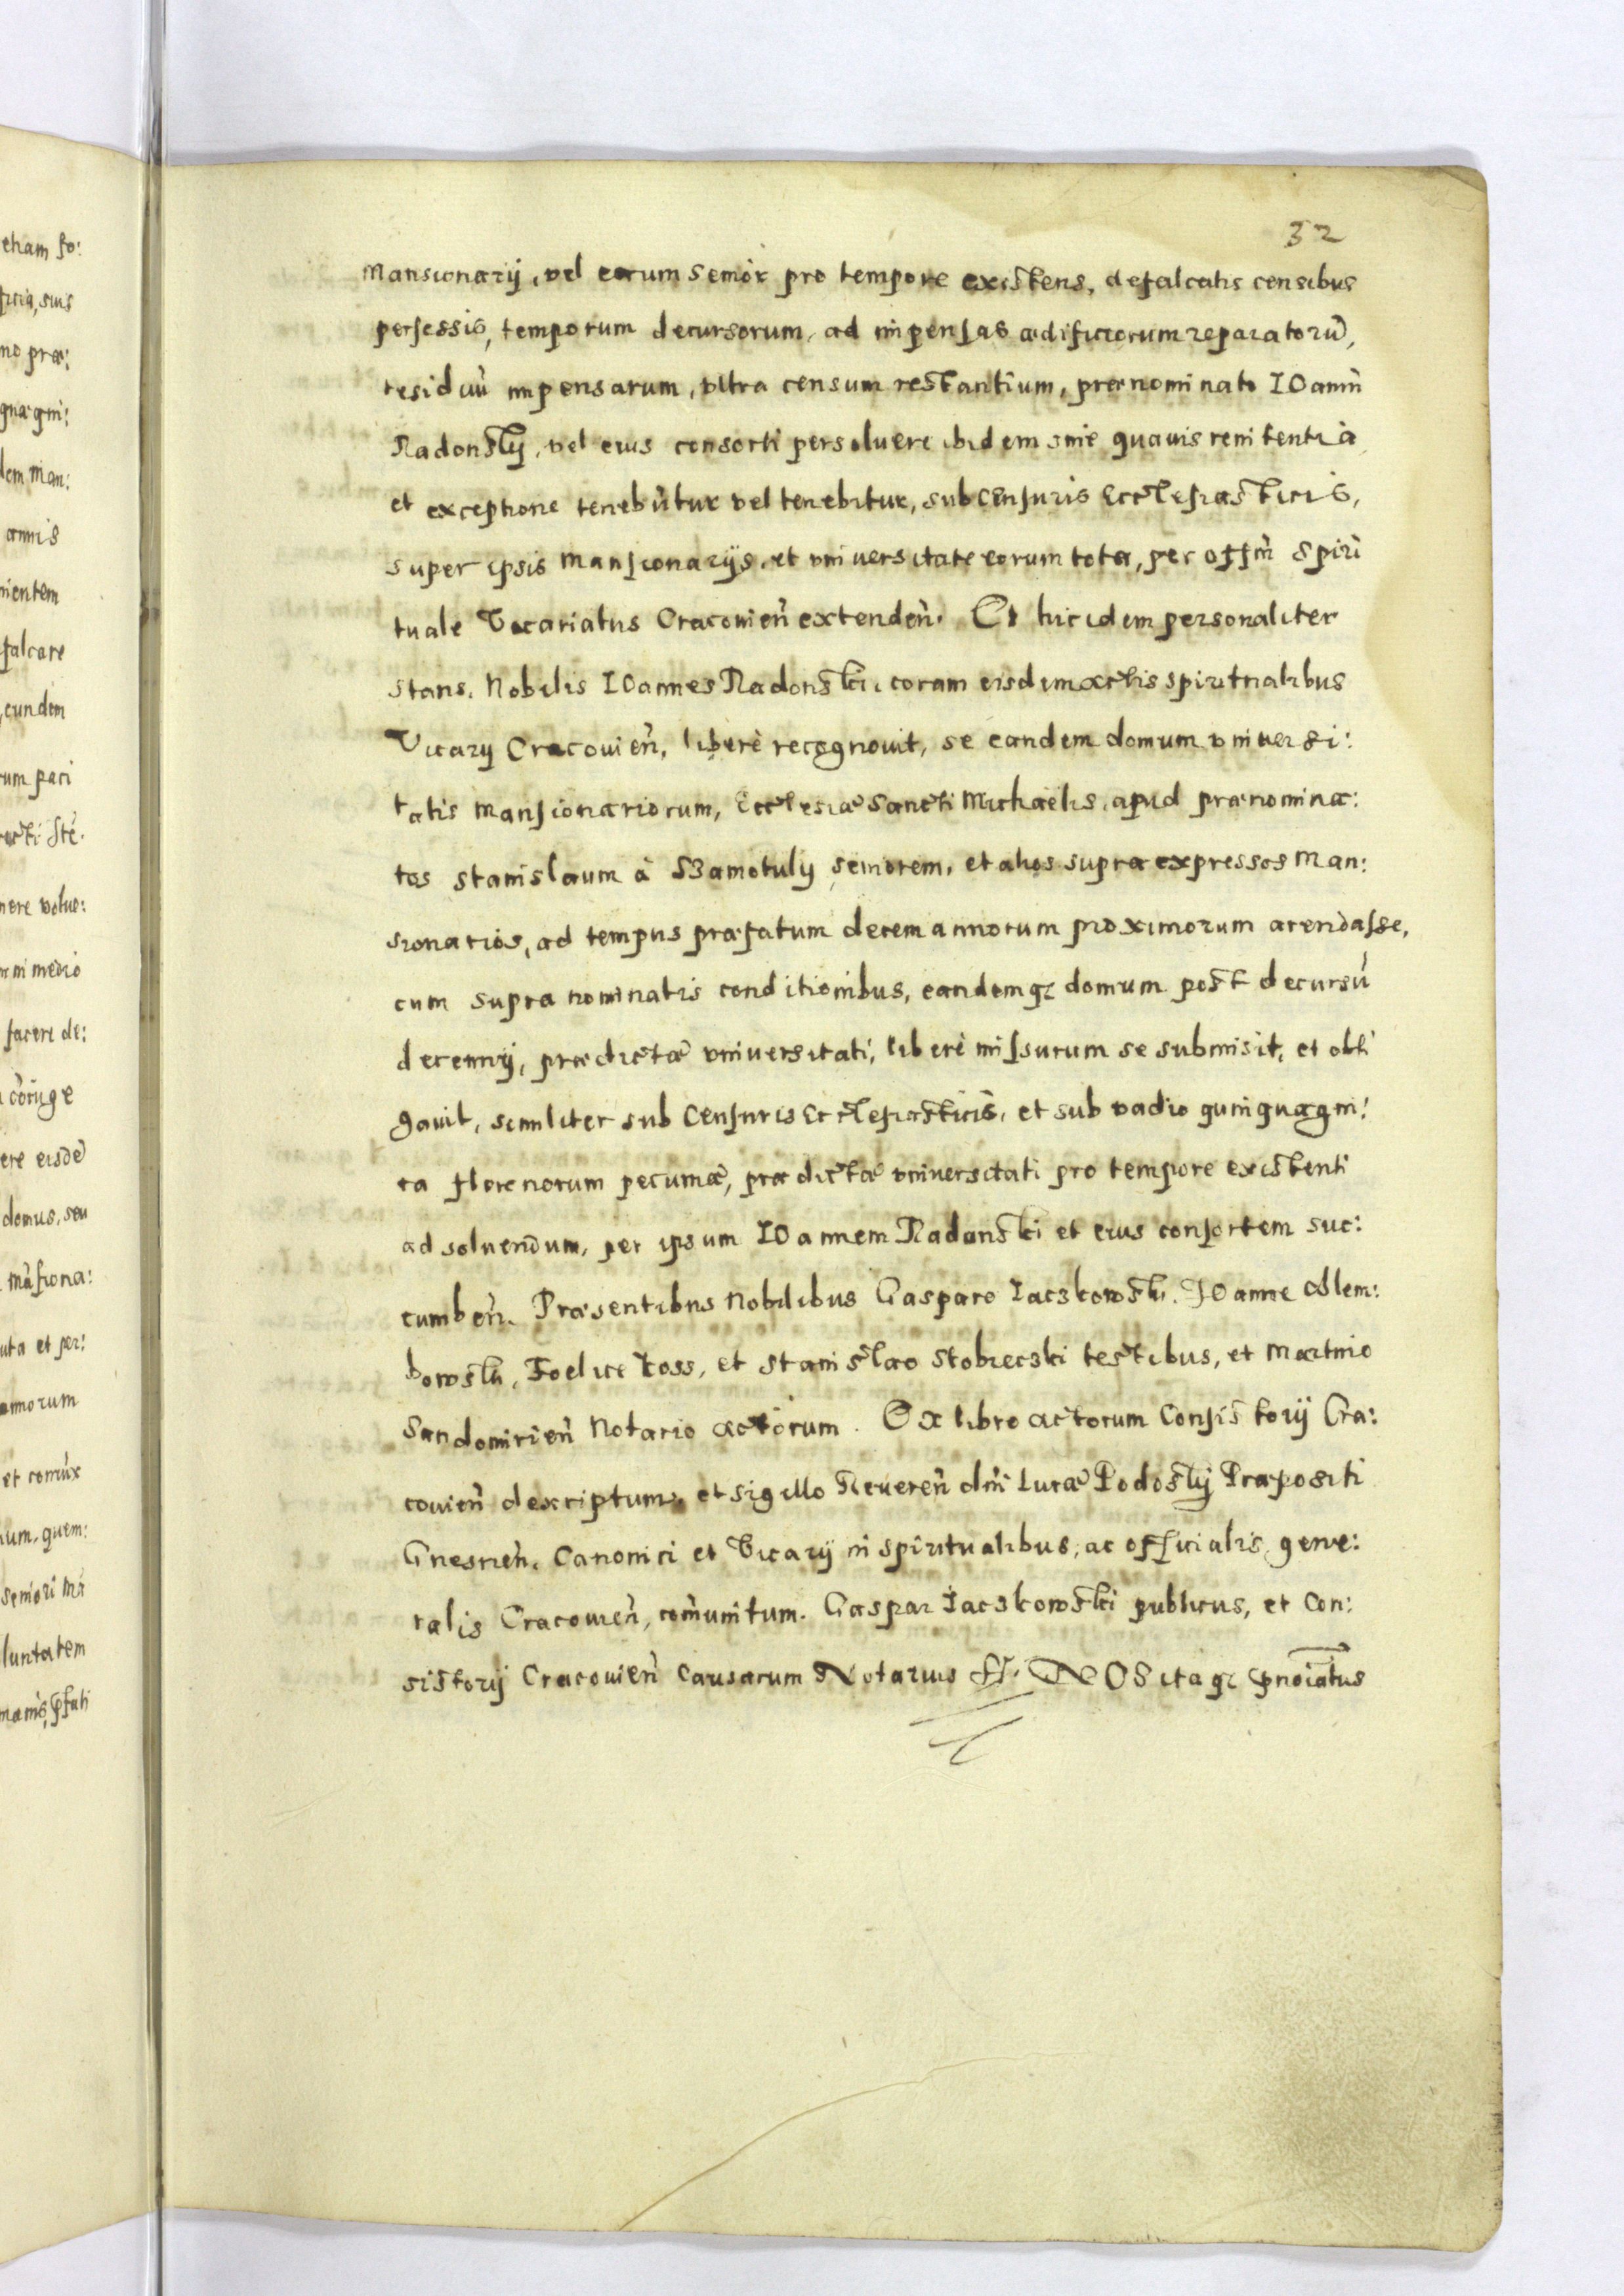 32
Mansionarij, vel eorum Senior pro tempore existens, defalcatis censibus
persessis, temporum decursorum, ad impensas ædificiorum reparatorũ,
residuũ impensarum, vltra censum restantium, prænominato IOanni
Radonsky, vel eius consorti persoluere ibidem sine quauis renitentià
et exceptione tenebũtur vel tenebitur, sub Censuris Ecclesiasticis,
super ipsis Mansionarijs, et vniuersitate eorum tota, per offm̃ Spiri
tuale Vicariatus Cracouien̄ extenden̄. Et hic idem personaliter
stans, Nobilis IOannes Radonski, coram eisdem actis spiritualibus
Vicarij Cracouien̄, liberè recognouit, se eandem domum vniuersi:
tatis Mansionariorum, Ecclesiæ Sancti Michaelis, apud prænomina:
tos Stanislaum à Szamotuly Seniorem, et alios supra expressos Man:
sionarios, ad tempus præfatum decem annorum proximorum arendasse,
cum supra nominatis conditionibus, eandemqz domum post decursũ
decennij, prædictæ vniuersitati, liberè missurum se submisit, et obli
gauit, similiter sub Censuris Ecclesiasticis, et sub vadio quinquagin:
ta florenorum pecuniæ, prædictæ vniuersitati pro tempore existenti
ad soluendum, per ipsum IOannem Radonski et eius consortem suc:
cumben̄. Præsentibus Nobilibus Gasparo Iaczkowski, IOanne Glem:
bowski, Foelice Koss, et Stanislao Stobieczki testibus, et Martino
Sandomirien̄ Notario actorum. Ex libro actorum Consistorij Cra:
couien̄ descriptum, et sigillo Reueren̄ dñi Lucæ Podosky Præpositi
Gnesnen̄, Canonici et Vicarij in spiritualibus, ac officialis gene:
ralis Cracouien̄, com̃unitum. Gaspar Iaczkowski publicus, et Con:
sistorij Cracouien̄ Causarum Notarius ss. NOS itaqz p̃noĩatus